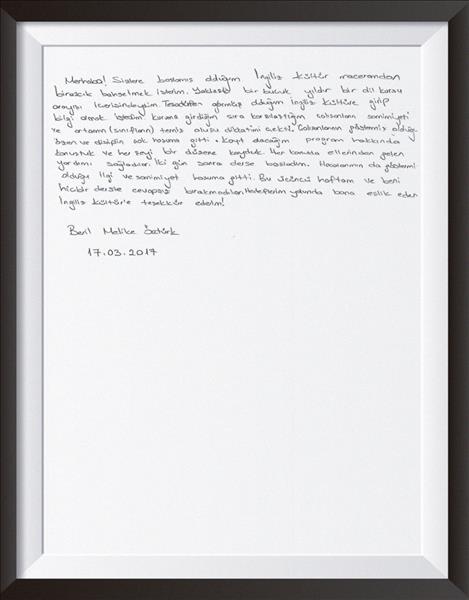 Merhaba! Sizlere başlamış olduğum İngiliz Kültür maceramdan
birazcık bahsetmek isterim. Yaklaşık bir buçuk yıldır bir dil kursu
arayışı içerisindeyim. Tesadüfen görmüş olduğum İngiliz Kültüre girip
bilgi almak istedim kurama girdiğim sıra karşılaştığım çalışanların samimiyeti
ve ortamın (sınıfların) temiz oluşu dikkatimi çekti. Çalışanların göstermiş olduğu
özen ve disiplin çok hoşuma gitti. Kayıt olacağım program hakkında
konuştuk ve her şeyi bir düzene koyduk. Her konuda ellerinden gelen
yardımı sağladılar. İki gün sonra derse başladım. Hocalarımın da göstermiş
olduğu ilgi ve samimiyet hoşuma gitti. Bu üçüncü haftam ve beni
hiçbir derste cevapsız bırakmadılar. Hedeflerim yolunda bana eşlik eden
İngiliz Kültür'e teşekkür ederim!
Beril Melike Öztürk
17.03.2017